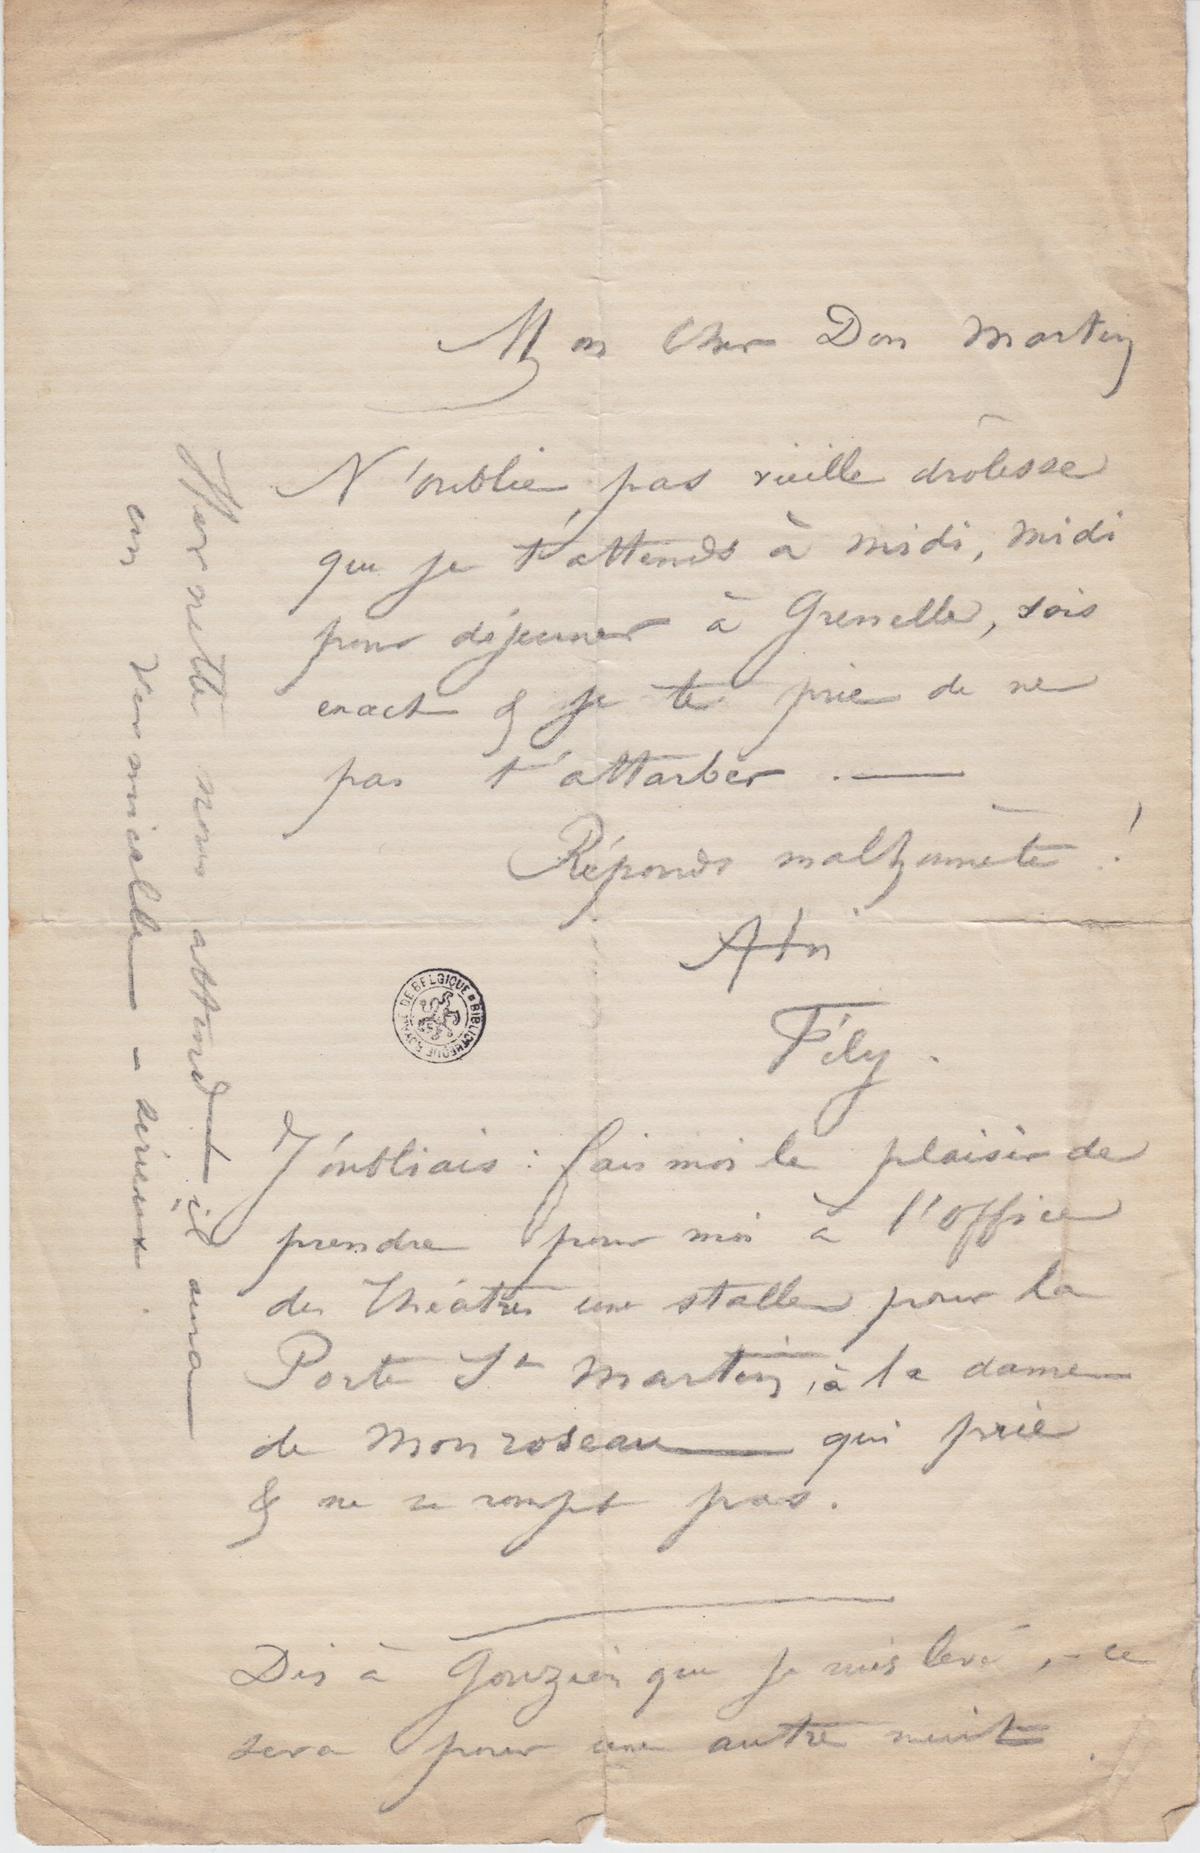 Mon Cher Don Martin
N'oublie pas vieille drôlesse
que je t'attends à midi, midi
pour déjeuner à Grenelle, sois
exact & je te prie de ne
pas t'attarber. —
Réponds malhonnête !
A toi
Fély.
J'oubliais : fais moi le plaisir de
prendre pour moi à l'office
des Théatres une stalle pour la
Porte St Martin, à la dame
de Mon roseau — qui prie
& ne se rompt pas.
Dis à Gouzien que je suis levé, - ce
sera pour une autre nuit.
nous attend il aura
un vermicelle - sérieux.
BIBLIOTHEQUE ROYALE DE BELGIQUE